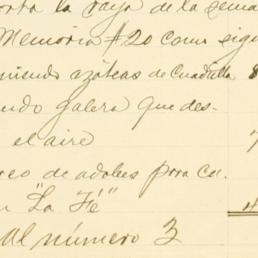 orta la raya de la sema
Memoria #20 como sigu
niendo azoteas de Cuadrilla 8
ndo galera que des-
el aire 7
reo de adobes para Ca-
"La Fé"
al número 3